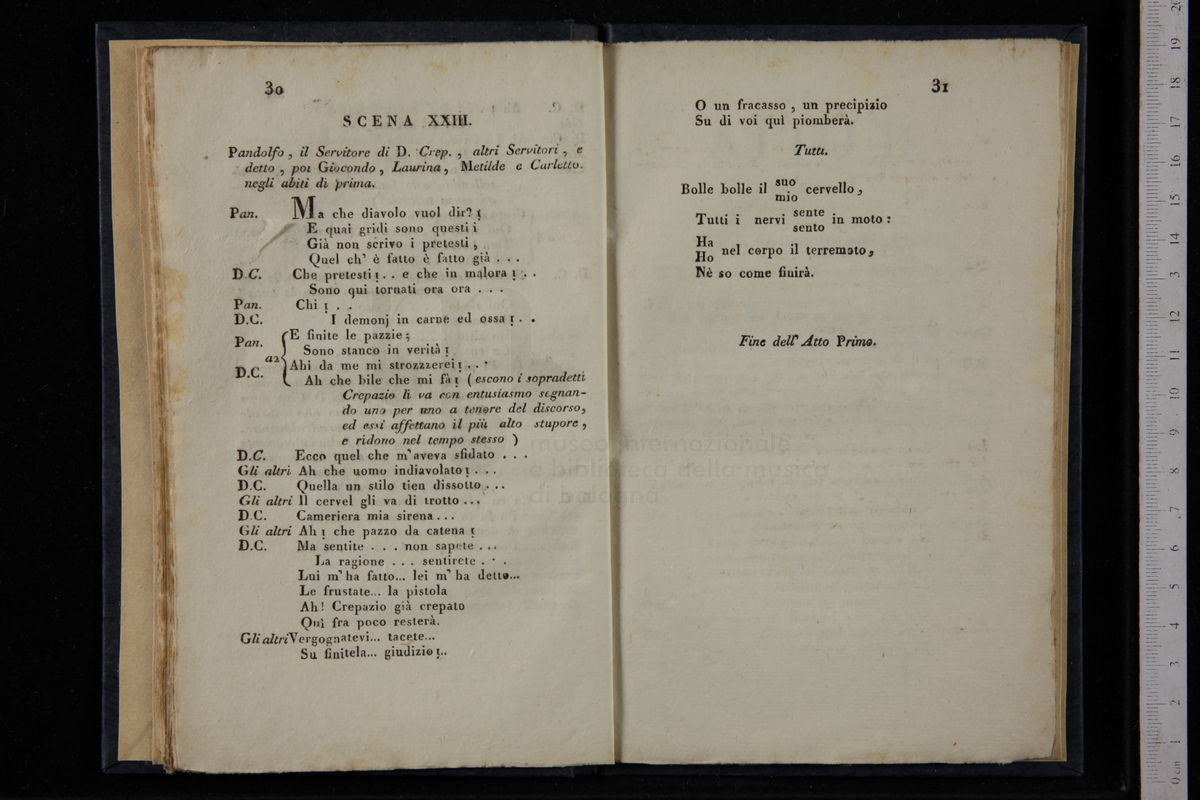 30
SCENA XXIII.
Pandolfo, il Servitore di D. Crep., altri Servitori, e
detto, poi Giocondo, Laurina, Metilde e Carletto.
negli abiti di prima.
Pan. Ma che diavolo vuol dir? !
E quai gridi sono questi!
Già non scrivo i pretesti,
Quel ch' è fatto è fatto già . . .
D.C. Che pretesti! . . e che in malora! . .
Sono qui tornati ora ora . . .
Pan. Chi! . .
D.C. I demonj in carne ed ossa! . .
Pan. E finite le pazzie;
Sono stanco in verità!
a2
D.C. Ahi da me mi strozzzerei! . . .
Ah che bile che mi fà! (escono i sopradetti
Crepazio li va con entusiasmo segnan-
do uno per uno a tenore del discorso,
ed essi affettano il più alto stupore,
e ridono nel tempo stesso )
D.C. Ecco quel che m'aveva sfidato . . .
Gli altri Ah che uomo indiavolato! . . .
D.C. Quella un stilo tien dissotto . . .
Gli altri Il cervel gli va di trotto ...
D.C. Cameriera mia sirena...
Gli altri Ah! che pazzo da catena!
D.C. Ma sentite . . . non sapete ...
La ragione . . . sentirete . . .
Lui m' ha fatto... lei m' ha detto...
Le frustate... la pistola
Ah! Crepazio già crepato
Qui fra poco resterà.
Gli altri Vergognatevi... tacete...
Su finitela... giudizio!..
31
O un fracasso, un precipizio
Su di voi quì piomberà.
Tutti.
Bolle bolle il suo cervello,
mio
Tutti i nervi sente in moto:
sento
Ha
Ho nel corpo il terremoto,
Nè so come finirà.
Fine dell' Atto Primo.
museo internazionale
e biblioteca della musica
di bologna
0 cm 1 2 3 4 5 6 7 8 9 10 11 12 13 14 15 16 17 18 19 20